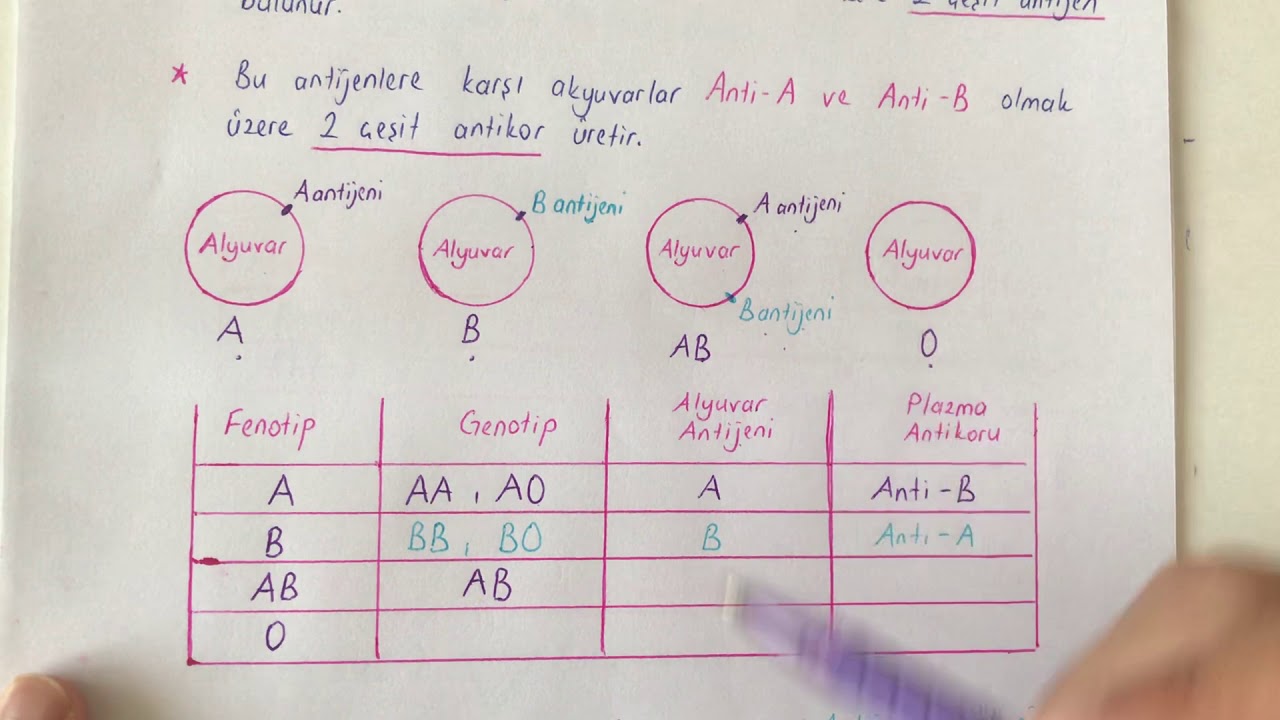 bulunur.
2 çeşit antijen
* Bu antijenlere karşı akyuvarlar Anti-A ve Anti-B olmak
üzere 2 çeşit antikor üretir.
A antijeni
B antijeni
A antijeni
Alyuvar
Alyuvar
Alyuvar
Alyuvar
B antijeni
A
B
AB
O
Fenotip Genotip Alyuvar Antijeni Plazma Antikoru
A AA, AO A Anti-B
B BB, BO B Anti-A
AB AB
O